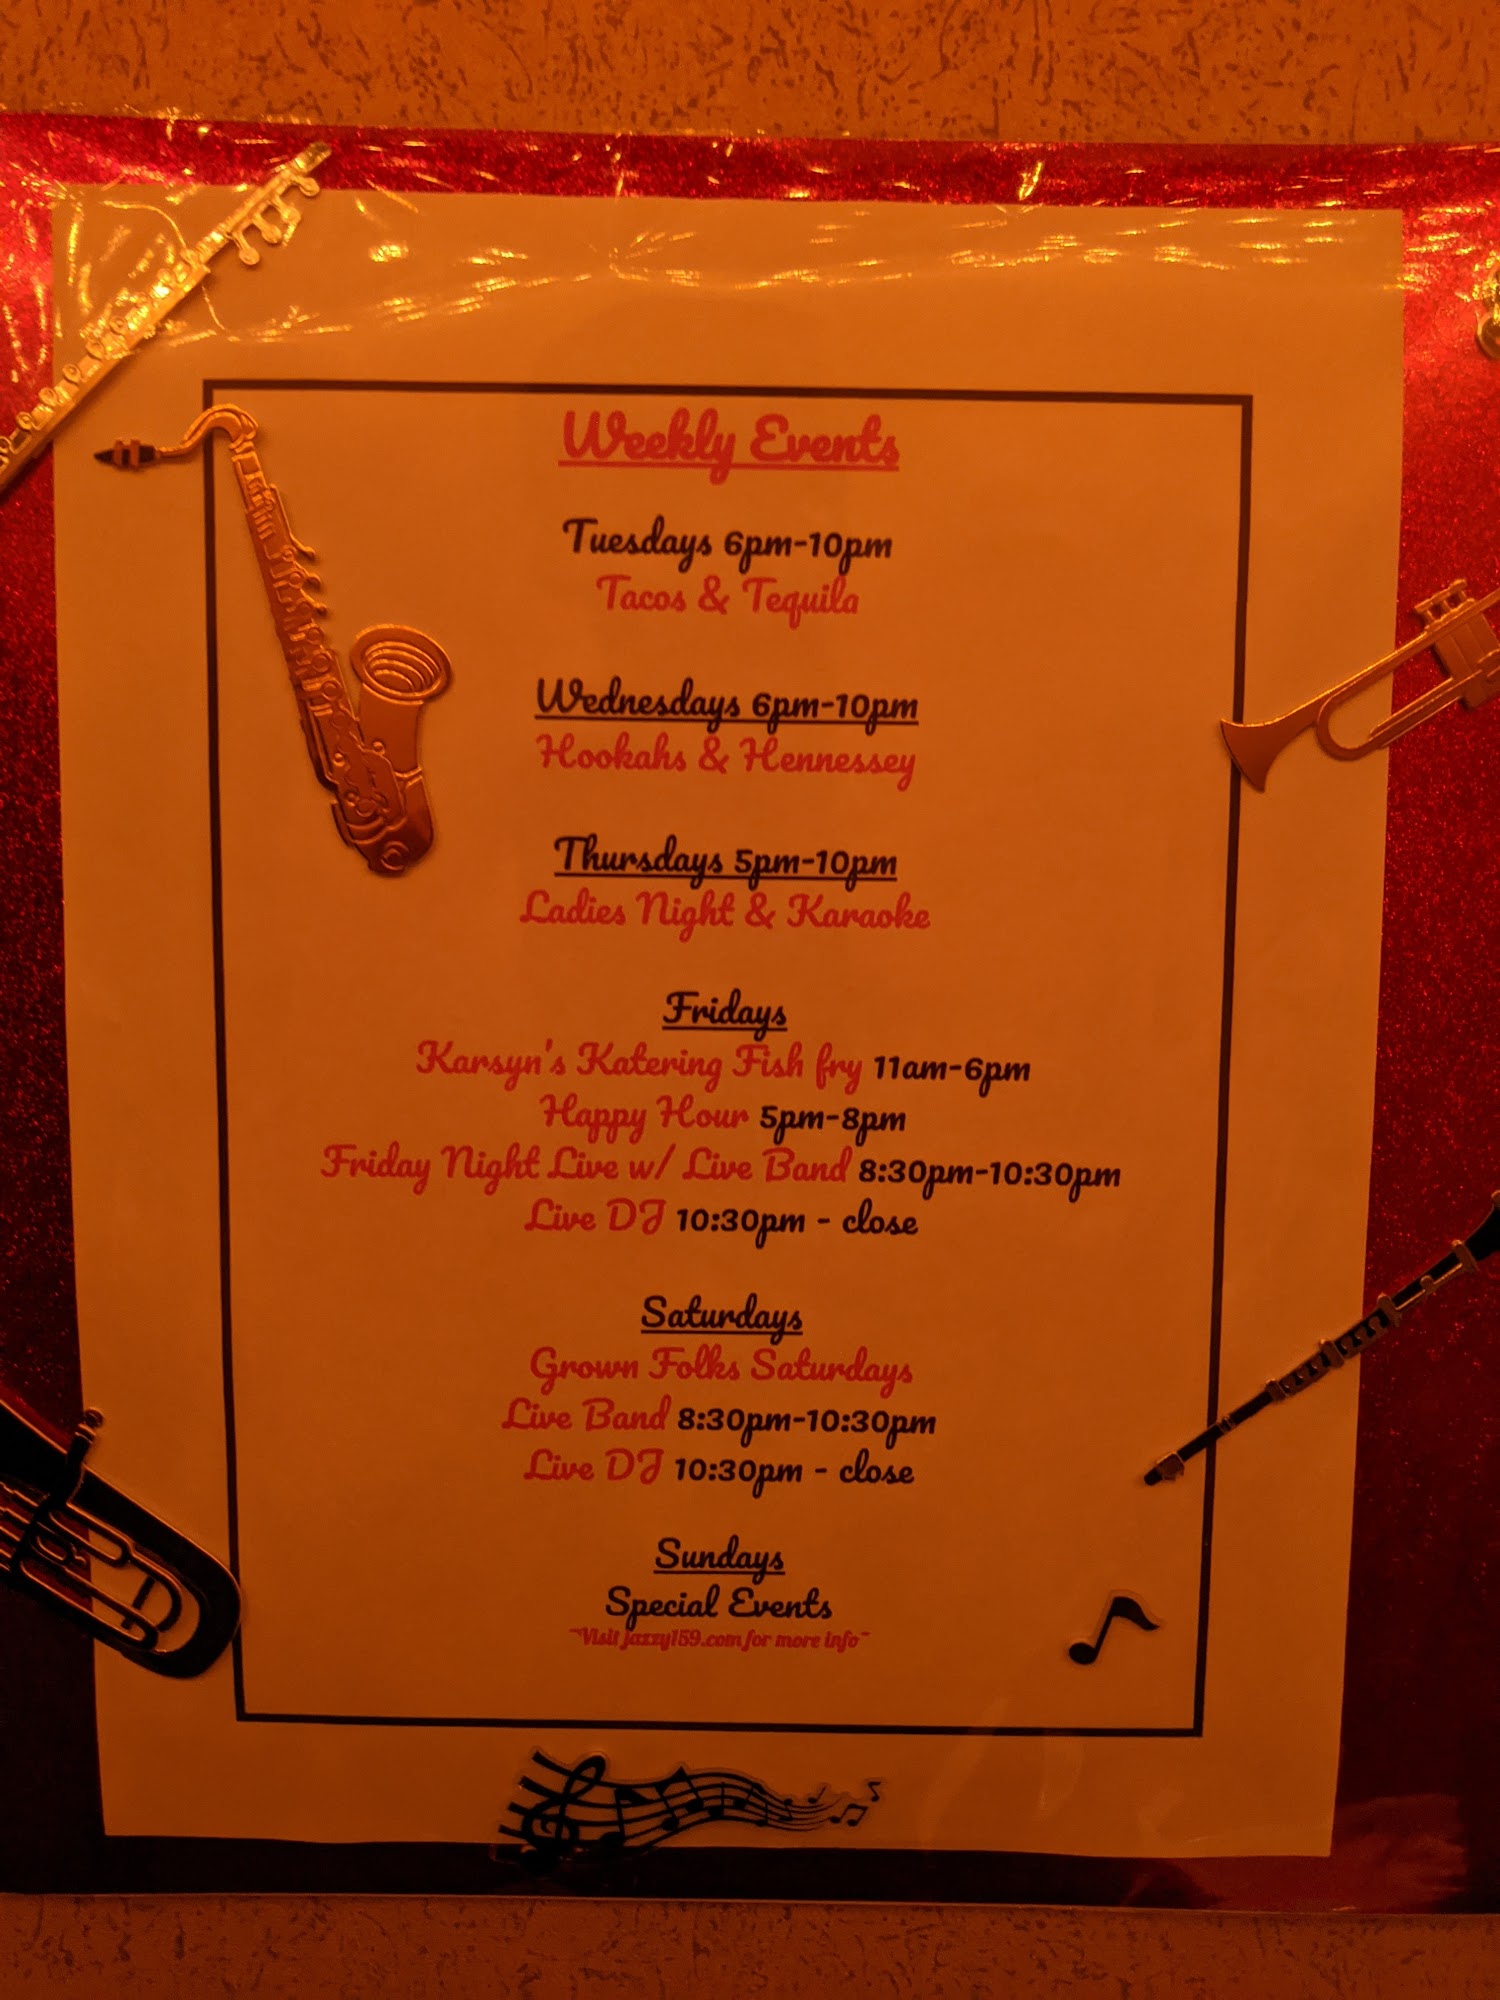 Weekly Events
Tuesdays 6pm-10pm
Tacos & Tequila
Wednesdays 6pm-10pm
Hookahs & Hennessey
Thursdays 5pm-10pm
Ladies Night & Karaoke
Fridays
Karsyn's Katering Fish fry 11am-6pm
Happy Hour 5pm-8pm
Friday Night Live w/ Live Band 8:30pm-10:30pm
Live DJ 10:30pm - close
Saturdays
Grown Folks Saturdays
Live Band 8:30pm-10:30pm
Live DJ 10:30pm - close
Sundays
Special Events
~Visit jazzy159.com for more info~